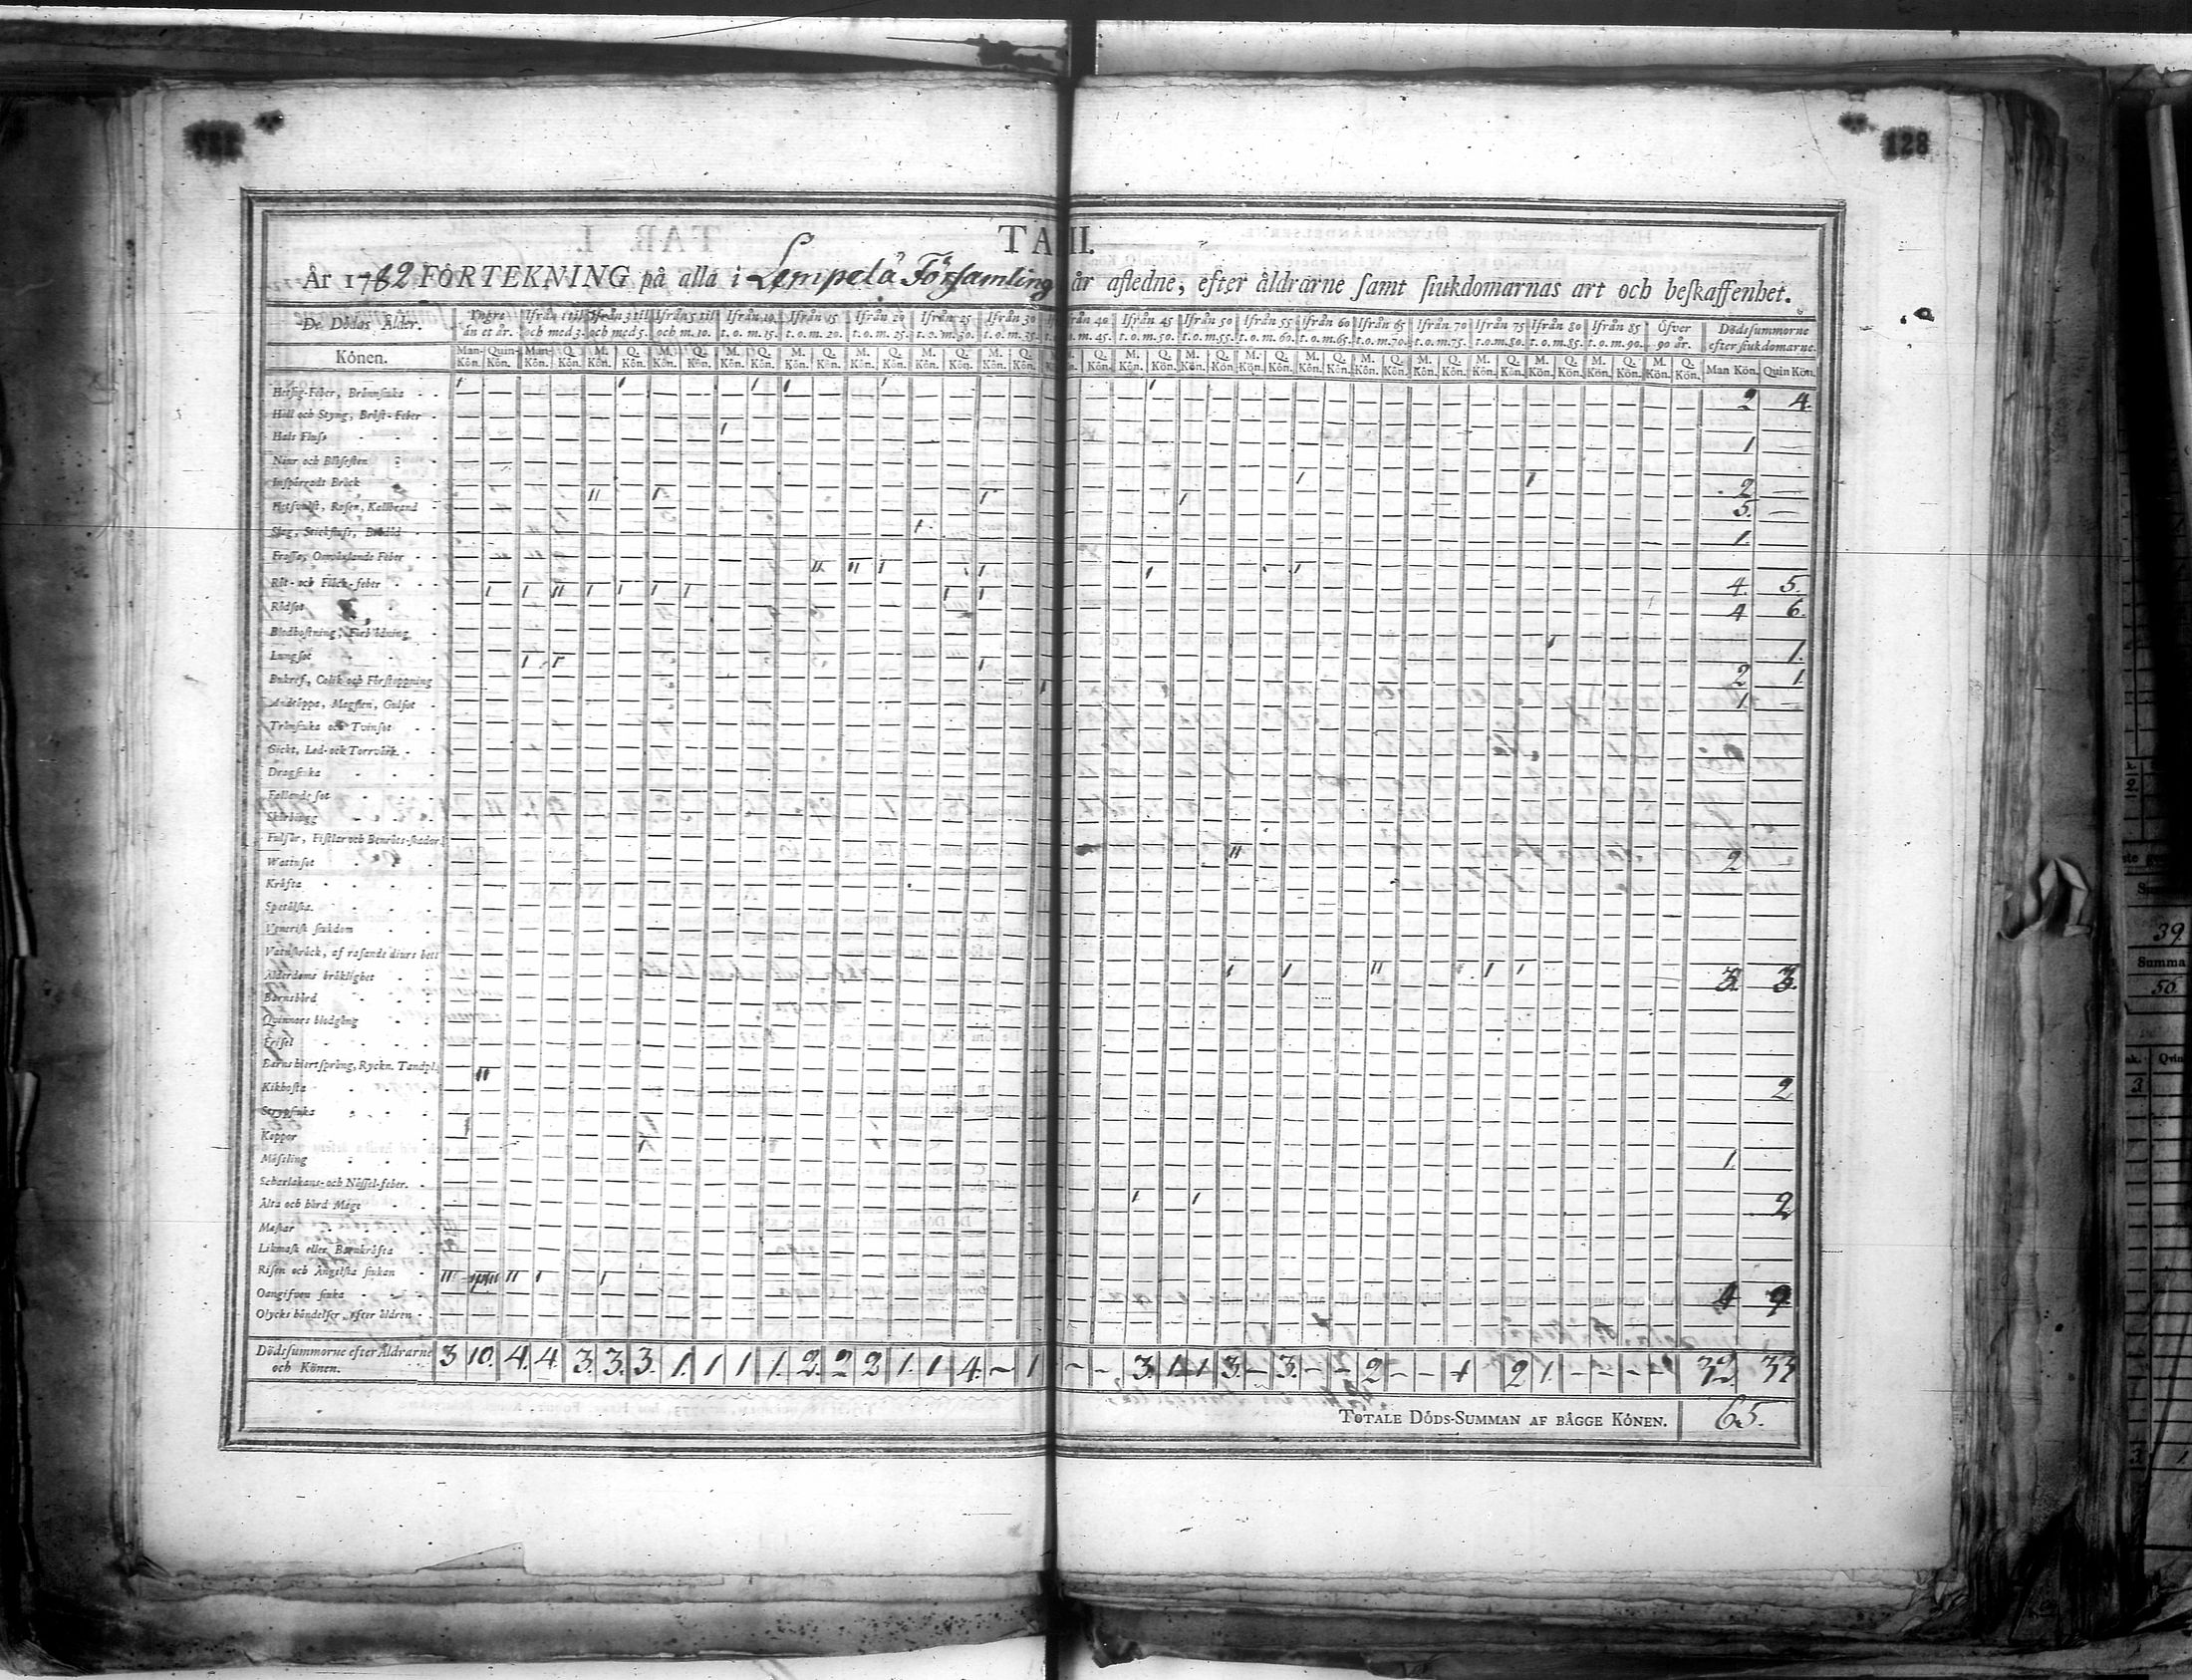 128
TAB. II.
År 1782 FÖRTEKNING på alla i Lempelä Församling år afledne, efter åldrarne samt siukdomarnas art och beskaffenhet.
De Dödas Ålder. Yngre än et år. Ifrån 1 til och med 3. Ifrån 3 til och med 5. Ifrån 5 til och m. 10. Ifrån 10 t. o. m. 15. Ifrån 15 t. o. m. 20. Ifrån 20 t. o. m. 25. Ifrån 25 t. o. m. 30. Ifrån 30 t. o. m. 35. Ifrån 40 t. o. m. 45. Ifrån 45 t. o. m. 50. Ifrån 50 t. o. m. 55. Ifrån 55 t. o. m. 60. Ifrån 60 t. o. m. 65. Ifrån 65 t. o. m. 70. Ifrån 70 t. o. m. 75. Ifrån 75 t. o. m. 80. Ifrån 80 t. o. m. 85. Ifrån 85 t. o. m. 90. Öfver 90 år. Dödssummorne efter siukdomarne.
Könen. Man-Kön. Quin-Kön. Man-Kön. Q. Kön. M. Kön. Q. Kön. M. Kön. Q. Kön. M. Kön. Q. Kön. M. Kön. Q. Kön. M. Kön. Q. Kön. M. Kön. Q. Kön. M. Kön. Q. Kön. Man Kön. Quin Kön.
Hetsig-Feber, Brännsiuka 2 4.
Håll och Styng, Bröst-Feber
Hals Fluss 1
Niur och Blåsesten
Inspärradt Bråck 2
Hetsvulst, Rosen, Kallbrand 5.
Slag, Stickfluss, Brådöd 1.
Frossa, Omväxlande Feber
Röt- och Fläck-feber 4. 5.
Rödsot 4 6.
Blodhostning, Förblödning 1.
Lungsot 2 1
Bukref, Colik och Förstoppning 1
Andtäppa, Magsten, Gulsot
Trånsiuka och Tvinsot
Gickt, Led- och Torrvärk
Dragsiuka
Fallande sot
Skörbiugg
Fulsår, Fistlar och Benröts-skador
Watinsot 2
Kräfta
Spetälska
Venerisk siukdom
Vatuskräck, af rasande diurs bett
Ålderdoms bräklighet 3 3.
Barnsbörd
Quinnors blodgång
Frisel
Barns hiertsprång, Ryckn. Tandpl.
Kikhosta 2
Strypsiuka
Koppor
Mässling 1.
Scharlakans- och Nässel-feber.
Älta och hård Mage 2
Maskar
Likmask eller Barnkräfta
Risen och Ängelska siukan
Oangifven siuka 4 9
Olycks händelser, efter åldren
Dödssummorne efter Åldrarne och Könen. 3 10. 4. 4. 3. 3. 3. 1. 1 1 1. 2. 2 2 1. 1 4. – 1 – – 3. 1 1 3. – 3. – – 2 – – 1 2 1. – – – – 32. 33
TOTALE DÖDS-SUMMAN AF BÅGGE KÖNEN. 65.
39.
Summa
50.
3